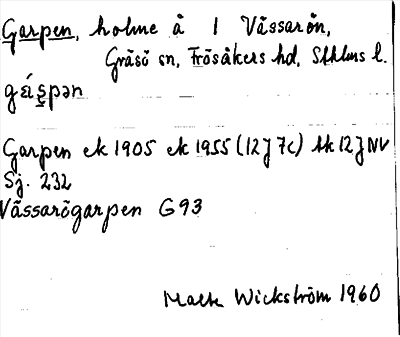 Garpen, holme å 1 Vässarön,
Gräsö sn, Frösåkers hd, Sthlms l.
Garpen ek 1905 ek 1955 (12J 7c) tk 12J NV
Sj. 232
Vässarögarpen G93
Wickström 1960